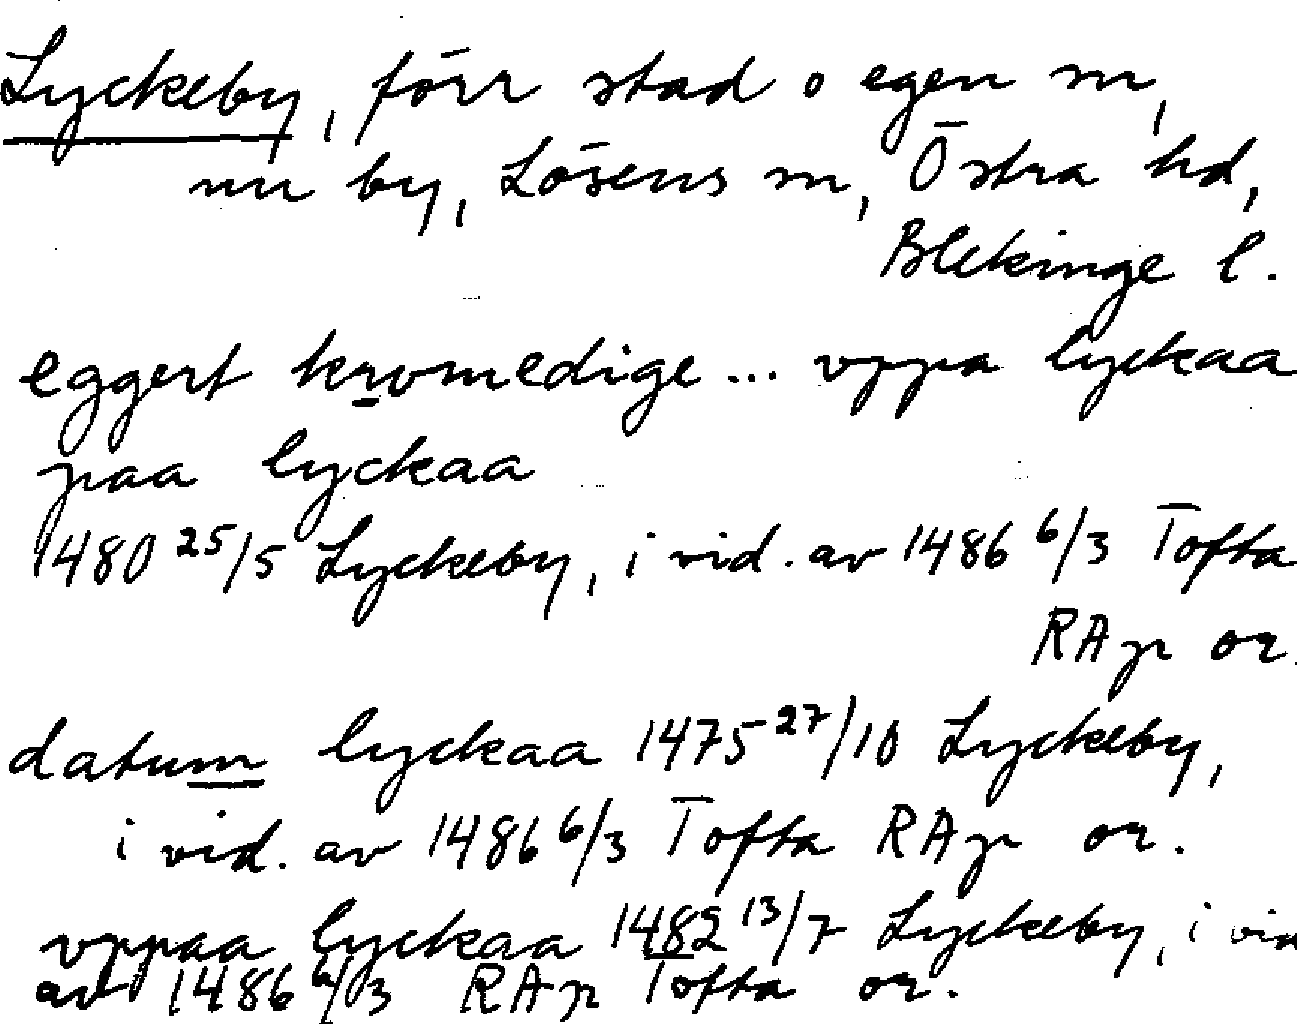 Lyckeby, förr stad o egen sn,
nu by, Lösens sn, Östra hd,
Blekinge l.
eggert krvmedige ... vppa lyckaa
paa lyckaa
1480 25/5 Lyckeby, i vid. av 1486 6/3 Tofta
RAp or.
datum lyckaa 1475 27/10 Lyckeby,
i vid. av 1486 6/3 Tofta RAp or.
vppaa lyckaa 1482 13/7 Lyckeby, i vid
av 1486 6/3 RAp Tofta or.